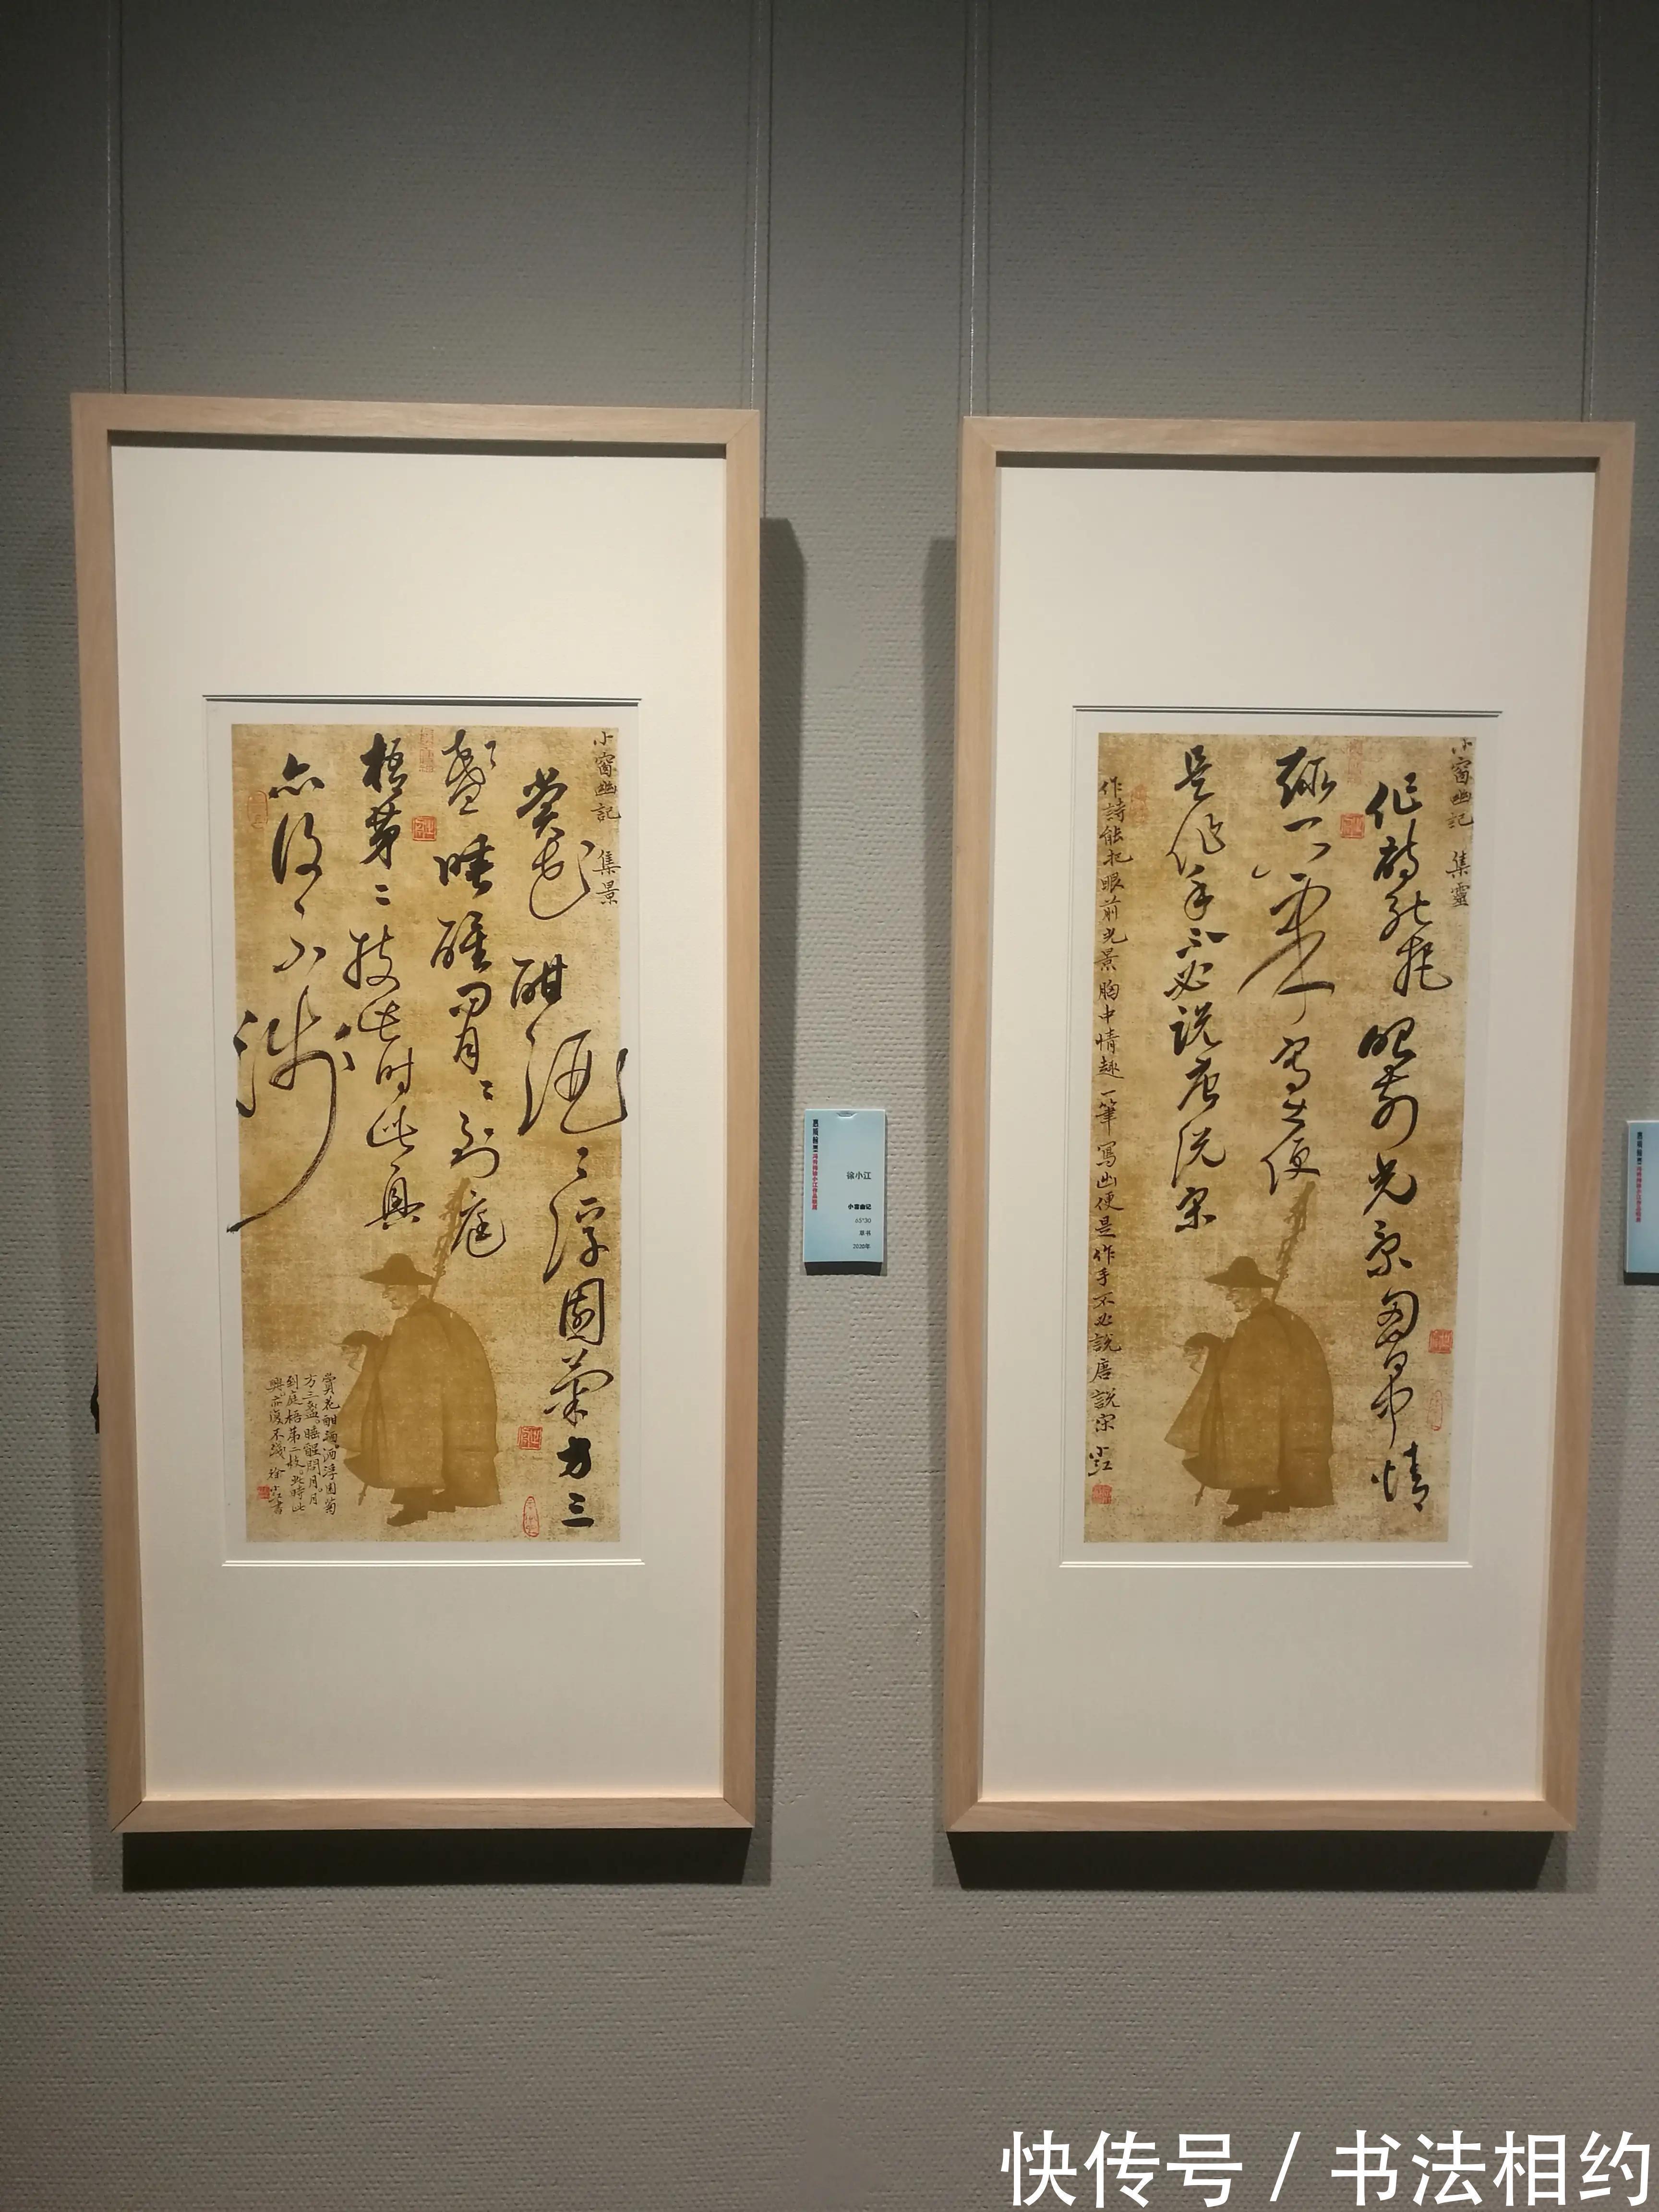 小窗幽記 集景
賞花酣酒〻浮園菊方三
盞睡醒問月〻到庭
梧第二枝此時此興
亦復不淺
賞花酣酒酒浮園菊
方三盞睡醒問月月
到庭梧第二枝此時此
興亦復不淺 徐小江書
徐小江
小窗幽记
65*30
草书
2020年
小窗幽記 集靈
作詩能把眼前光景胸中情
趣一筆寫出便
是作手不必說唐說宋
作詩能把眼前光景胸中情趣一筆寫出便是作手不必說唐說宋 小江
快传号 / 书法相约